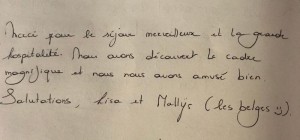 Merci pour le séjour merveilleux et la grande
hospitalité. Nous avons découvert le cadre
magnifique et nous nous avons amusé bien
Salutations, Lisa et Mallijs (les belges :))